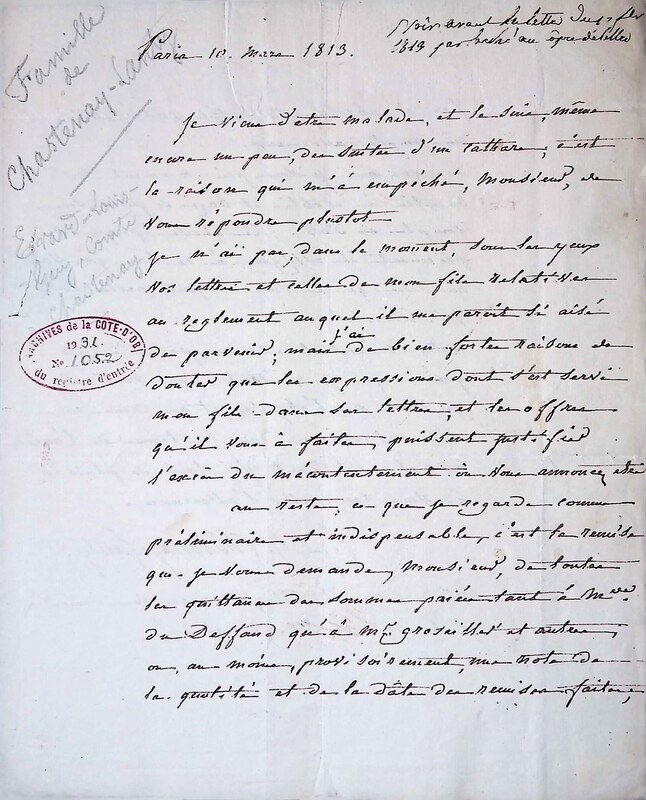 Voir avant la lettre du 17 fev
1813 par
Paris 10. Mars 1813.
Famille
de
Chastenay-Lanty
Erard-Louis-
Guy, Comte
Chastenay
ARCHIVES de la COTE-D'OR
1931
No. 1052
du registre d'entrée
Je viens d'etre malade, et le suis, même
encore un peu, des suites d'un cathare; c'est
la raison qui m'à empéché, Monsieur, de
vous répondre plustot
je n'ai pas, dans le moment, sous les yeux
vos lettres et celles de mon fils relatives
au reglement auquel il me paroit si aisé
de parvenir, mais j'ai de bien fortes raisons de
douter que les expressions dont s'est servi
mon fils dans ses lettres, et les offres
qu'il vous à faites, puissent justifier
l'excès du mécontentement où vous annoncez etre
au reste, ce que je regarde comme
préliminaire et indispensable, c'est la remise
que je vous demande, Monsieur, de toutes
les quittances des sommes paiées tant à Mde.
du Deffand qu'à Mr. groseillet et autres,
ou, au moins, provisoirement, une note de
la quotité et de la date des remises faites,